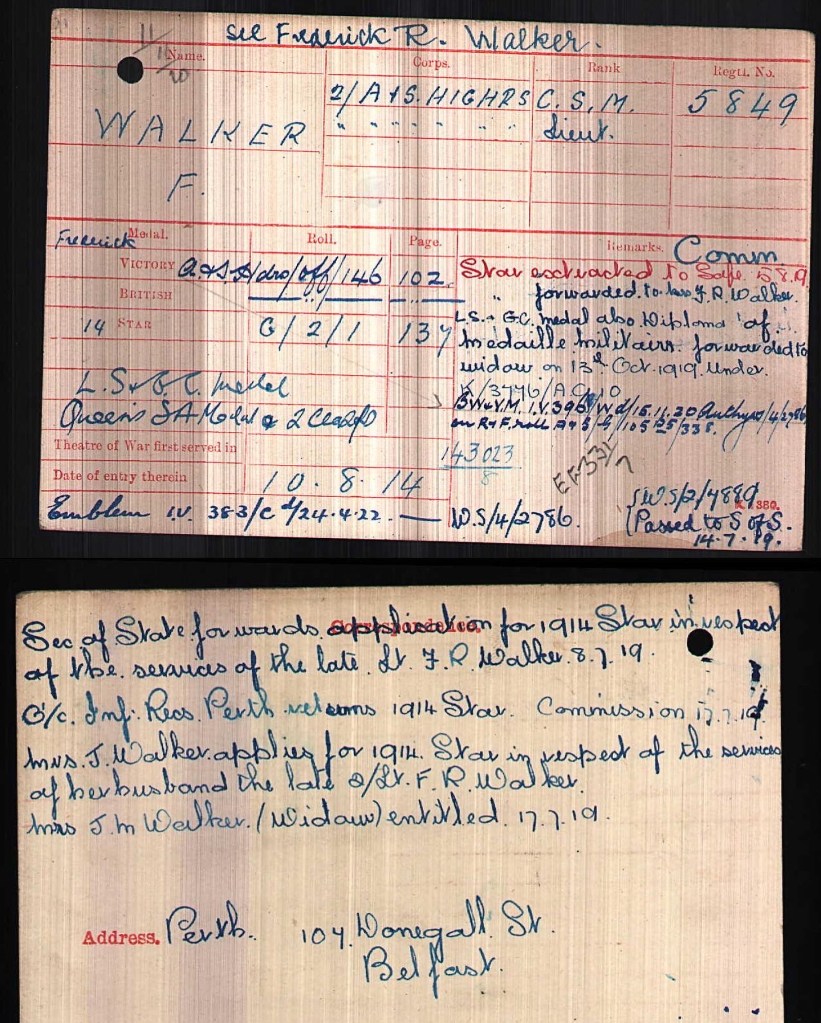 see Frederick R. Walker.
Name. Corps. Rank Regtl. No.
2/ A & S. HIGHRS C. S. M. 5849
" " " " " Lieut.
WALKER
F.
Frederick
Medal. Roll. Page. Remarks. Comm
VICTORY A. & S. Hdrs/off/146 102
BRITISH " "
14 STAR G/2/1 137
L.S & G.C. medal
Queen's SA Medal & 2 Clasps
Star extracted to Safe 5.8.19
" forwarded to Mrs F. R. Walker.
L.S. & G.C. medal also Diploma of
medaille militaire forwarded to
widow on 13th Oct. 1919. Under
K/3746/A.C.10
B.W & V.M. I.V. 396 15.11.20
on R & F. roll
Theatre of War first served in
143023
8
Date of entry therein 10.8.14
EF33/7
Emblem I.V. 383/C d/24.4.22. — W.S/4/2786.
S.W.S/2/4889
K. 1380.
(Passed to S of S.
14.7.19.
Correspondence.
Sec. of State forwards application for 1914 Star in respect
of the services of the late Lt. F. R. Walker. 8.7.19.
O/c. Inf: Recs. Perth returns 1914 Star. Commission 17.7.19
Mrs. J. Walker applies for 1914 Star in respect of the services
of her husband the late 2/Lt. F. R. Walker.
Mrs J. M Walker. (Widow) entitled. 17.7.19.
Address. Perth. 107. Donegall St.
Belfast.